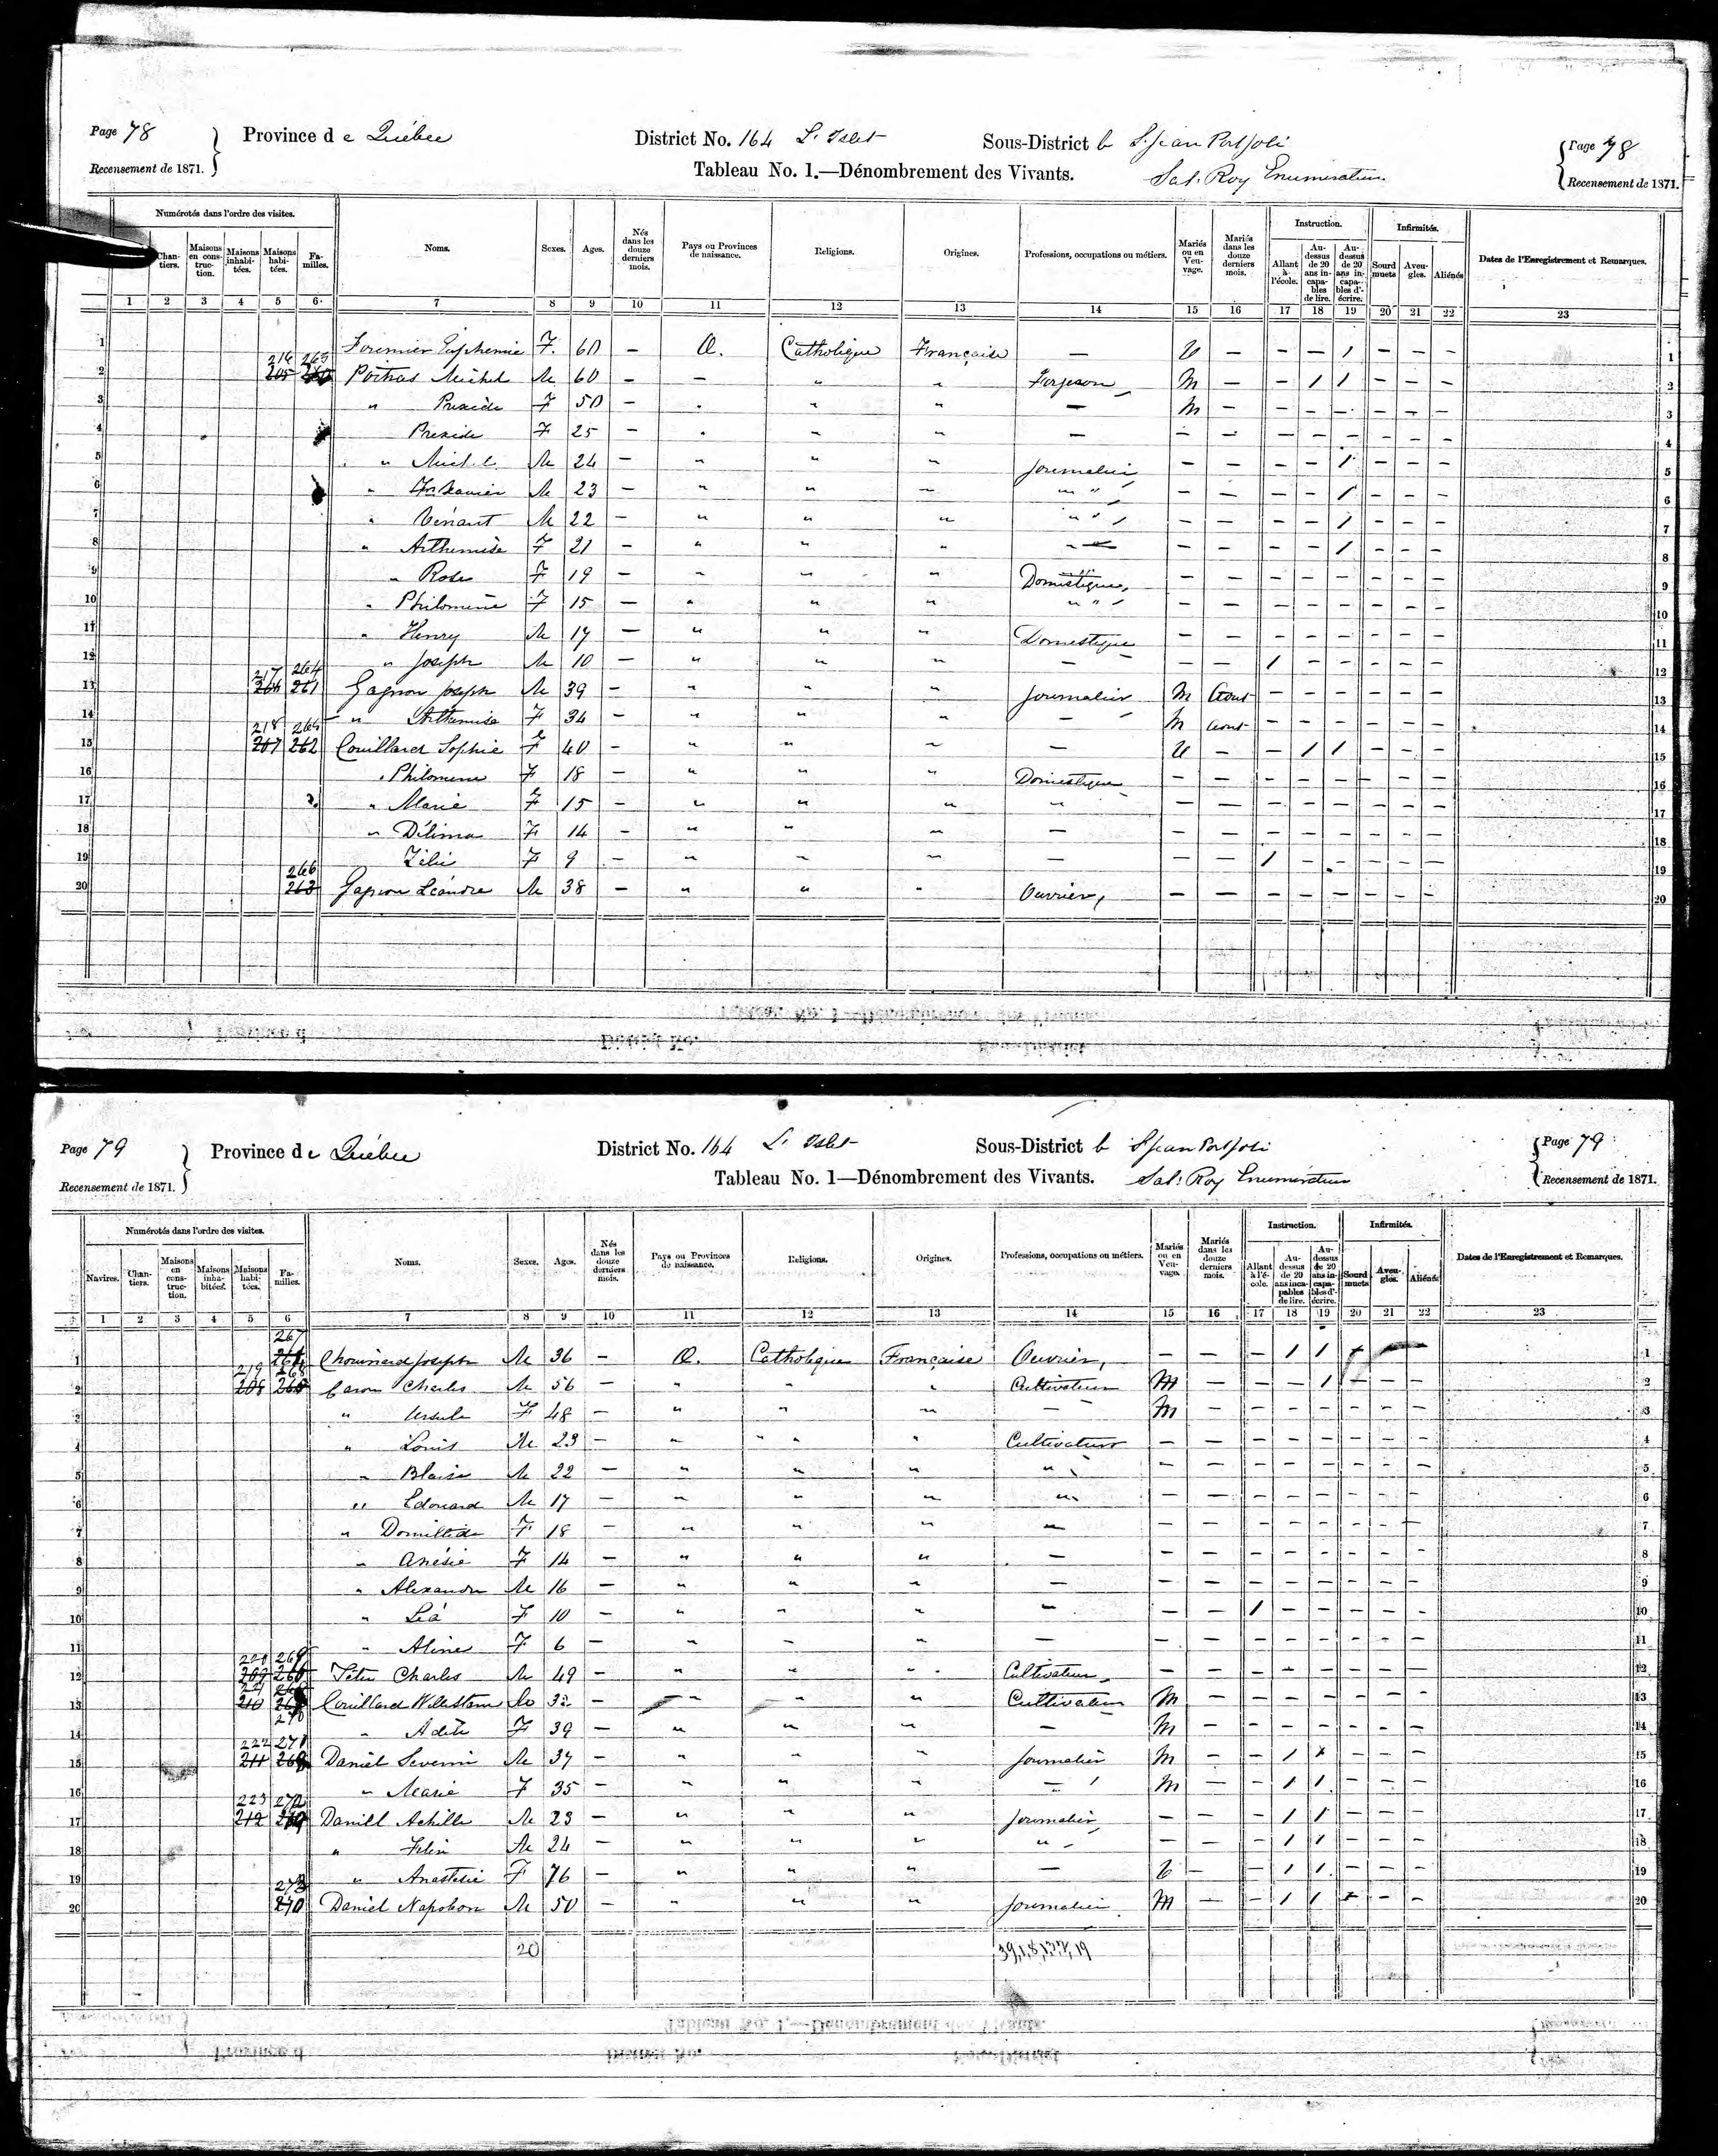 Page 78 Province de Québec District No. 164 L'Islet Sous-District b St Jean Port Joli Page 78
Recensement de 1871. Tableau No. 1.—Dénombrement des Vivants. Sal. Roy Enumerateur Recensement de 1871.
Numérotés dans l'ordre des visites. Chantiers. Maisons en construction. Maisons inhabitées. Maisons habitées. Familles. Noms. Sexes. Ages. Nés dans les douze derniers mois. Pays ou Provinces de naissance. Religions. Origines. Professions, occupations ou métiers. Mariés ou en Veuvage. Mariés dans les douze derniers mois. Instruction. Allant à l'école. Au-dessus de 20 ans incapables de lire. Au-dessus de 20 ans incapables d'écrire. Infirmités. Sourd muets Aveugles. Aliénés Dates de l'Enregistrement et Remarques.
1 2 3 4 5 6 7 8 9 10 11 12 13 14 15 16 17 18 19 20 21 22 23
1 Fournier Euphemie F. 60 — Q. Catholique Française — V — — — 1 — — — 1
2 216 263 Poitras Michel M 60 — — " " Forgeron M — — 1 1 — — — 2
3 " Prexède F 50 — " " " — M — — — — — — — 3
4 Prexède F 25 — " " " — — — — — — — — — 4
5 " Michel M 24 — " " " Journalier — — — — 1 — — — 5
6 " Frs Xavier M 23 — " " " " — — — — 1 — — — 6
7 " Vénant M 22 — " " " " — — — — 1 — — — 7
8 " Arthemise F 21 — " " " — — — — — 1 — — — 8
9 " Rose F 19 — " " " Domestique, — — — — — — — — 9
10 " Philomène F 15 — " " " " — — — — — — — — 10
11 " Henry M 17 — " " " Domestique — — — — — — — — 11
12 " Joseph M 10 — " " " — — — 1 — — — — — 12
13 217 264 261 Gagnon Joseph M 39 — " " " Journalier M Aout — — — — — — 13
14 " Arthemise F 34 — " " " — M Aout — — — — — — 14
15 218 265 207 262 Couillard Sophie F 40 — " " " — V — — 1 1 — — — 15
16 " Philomene F 18 — " " " Domestique — — — — — — — — 16
17 " Marie F 15 — " " " " — — — — — — — — 17
18 " Délima F 14 — " " " — — — — — — — — — 18
19 Zélie F 9 — " " " — — — 1 — — — — — 19
20 266 263 Gagnon Léandre M 38 — " " " Ouvrier, — — — — — — — — 20
Page 79 Province de Québec District No. 164 L'Islet Sous-District b St Jean Port Joli Page 79
Recensement de 1871. Tableau No. 1—Dénombrement des Vivants. Sal. Roy Enumerateur Recensement de 1871.
Numérotés dans l'ordre des visites. Navires. Chantiers. Maisons en construction. Maisons inhabitées. Maisons habitées. Familles. Noms. Sexes. Ages. Nés dans les douze derniers mois. Pays ou Provinces de naissance. Religions. Origines. Professions, occupations ou métiers. Mariés ou en Veuvage. Mariés dans les douze derniers mois. Instruction. Allant à l'école. Au-dessus de 20 ans incapables de lire. Au-dessus de 20 ans incapables d'écrire. Infirmités. Sourd muets Aveugles. Aliénés Dates de l'Enregistrement et Remarques.
1 2 3 4 5 6 7 8 9 10 11 12 13 14 15 16 17 18 19 20 21 22 23
1 267 Chouinard Joseph M 36 — Q. Catholique Française Ouvrier, — — — 1 1 1
2 219 268 208 Caron Charles M 56 — " " " Cultivateur M — — — 1 — — — 2
3 " Ursule F 48 — " " " — M — — — — — — — 3
4 " Louis M 23 — " " " Cultivateur — — — — — — — — 4
5 " Blaise M 22 — " " " " — — — — — — — — 5
6 " Edouard M 17 — " " " " — — — — — — — — 6
7 " Domithilde F 18 — " " " — — — — — — — — — 7
8 " Anésie F 14 — " " " — — — — — — — — — 8
9 " Alexandre M 16 — " " " — — — — — — — — — 9
10 " Léa F 10 — " " " — — — 1 — — — — — 10
11 " Aline F 6 — " " " — — — — — — — — — 11
12 220 269 Tétu Charles M 49 — " " " Cultivateur — — — — — — — — 12
13 221 210 270 Couillard M 32 — " " " Cultivateur M — — — — — — — 13
14 " Adèle F 39 — " " " — M — — — — — — — 14
15 222 271 211 268 Daniel Severin M 37 — " " " Journalier M — — 1 1 — — — 15
16 " Marie F 35 — " " " — M — — 1 1 — — — 16
17 223 272 212 269 Daniel Achille M 23 — " " " Journalier — — — 1 1 — — — 17
18 " M 24 — " " " " — — — 1 1 — — — 18
19 " Anastasie F 76 — " " " — V — — 1 1 — — — 19
20 273 270 Daniel Napoleon M 50 — " " " Journalier M — — 1 1 — — — 20
20